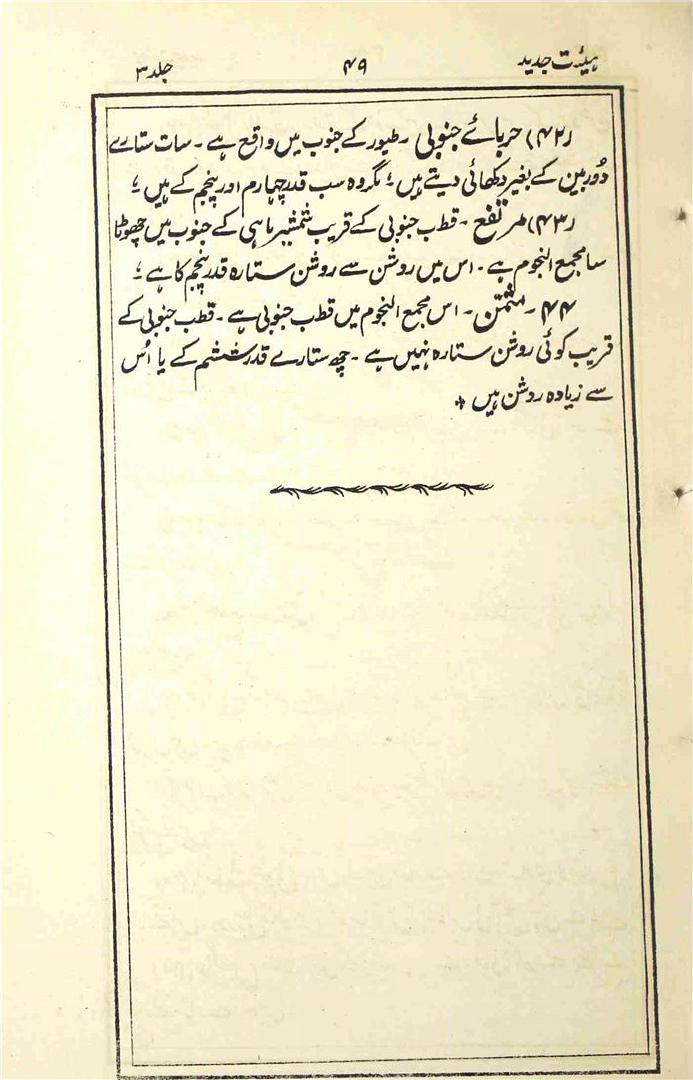 ہیئت جدید ۴۹ جلد ۳
(۴۲) حربائے جنوبی ۔ طیور کے جنوب میں واقع ہے ۔ سات ستارے
دُوربین کے بغیر دکھائی دیتے ہیں ؛ مگر وہ سب قدر چہارم اور پنجم کے ہیں ؛
(۴۳) مرتفع ۔ قطب جنوبی کے قریب شمشیر ماہی کے جنوب میں چھوٹا
سا مجمع النجوم ہے ۔ اس میں روشن سے روشن ستارہ قدر پنجم کا ہے ؛
۴۴ ۔ مثمّن ۔ اس مجمع النجوم میں قطب جنوبی ہے ۔ قطب جنوبی کے
قریب کوئی روشن ستارہ نہیں ہے ۔ چھ ستارے قدر ششم کے یا اُس
سے زیادہ روشن ہیں ٭